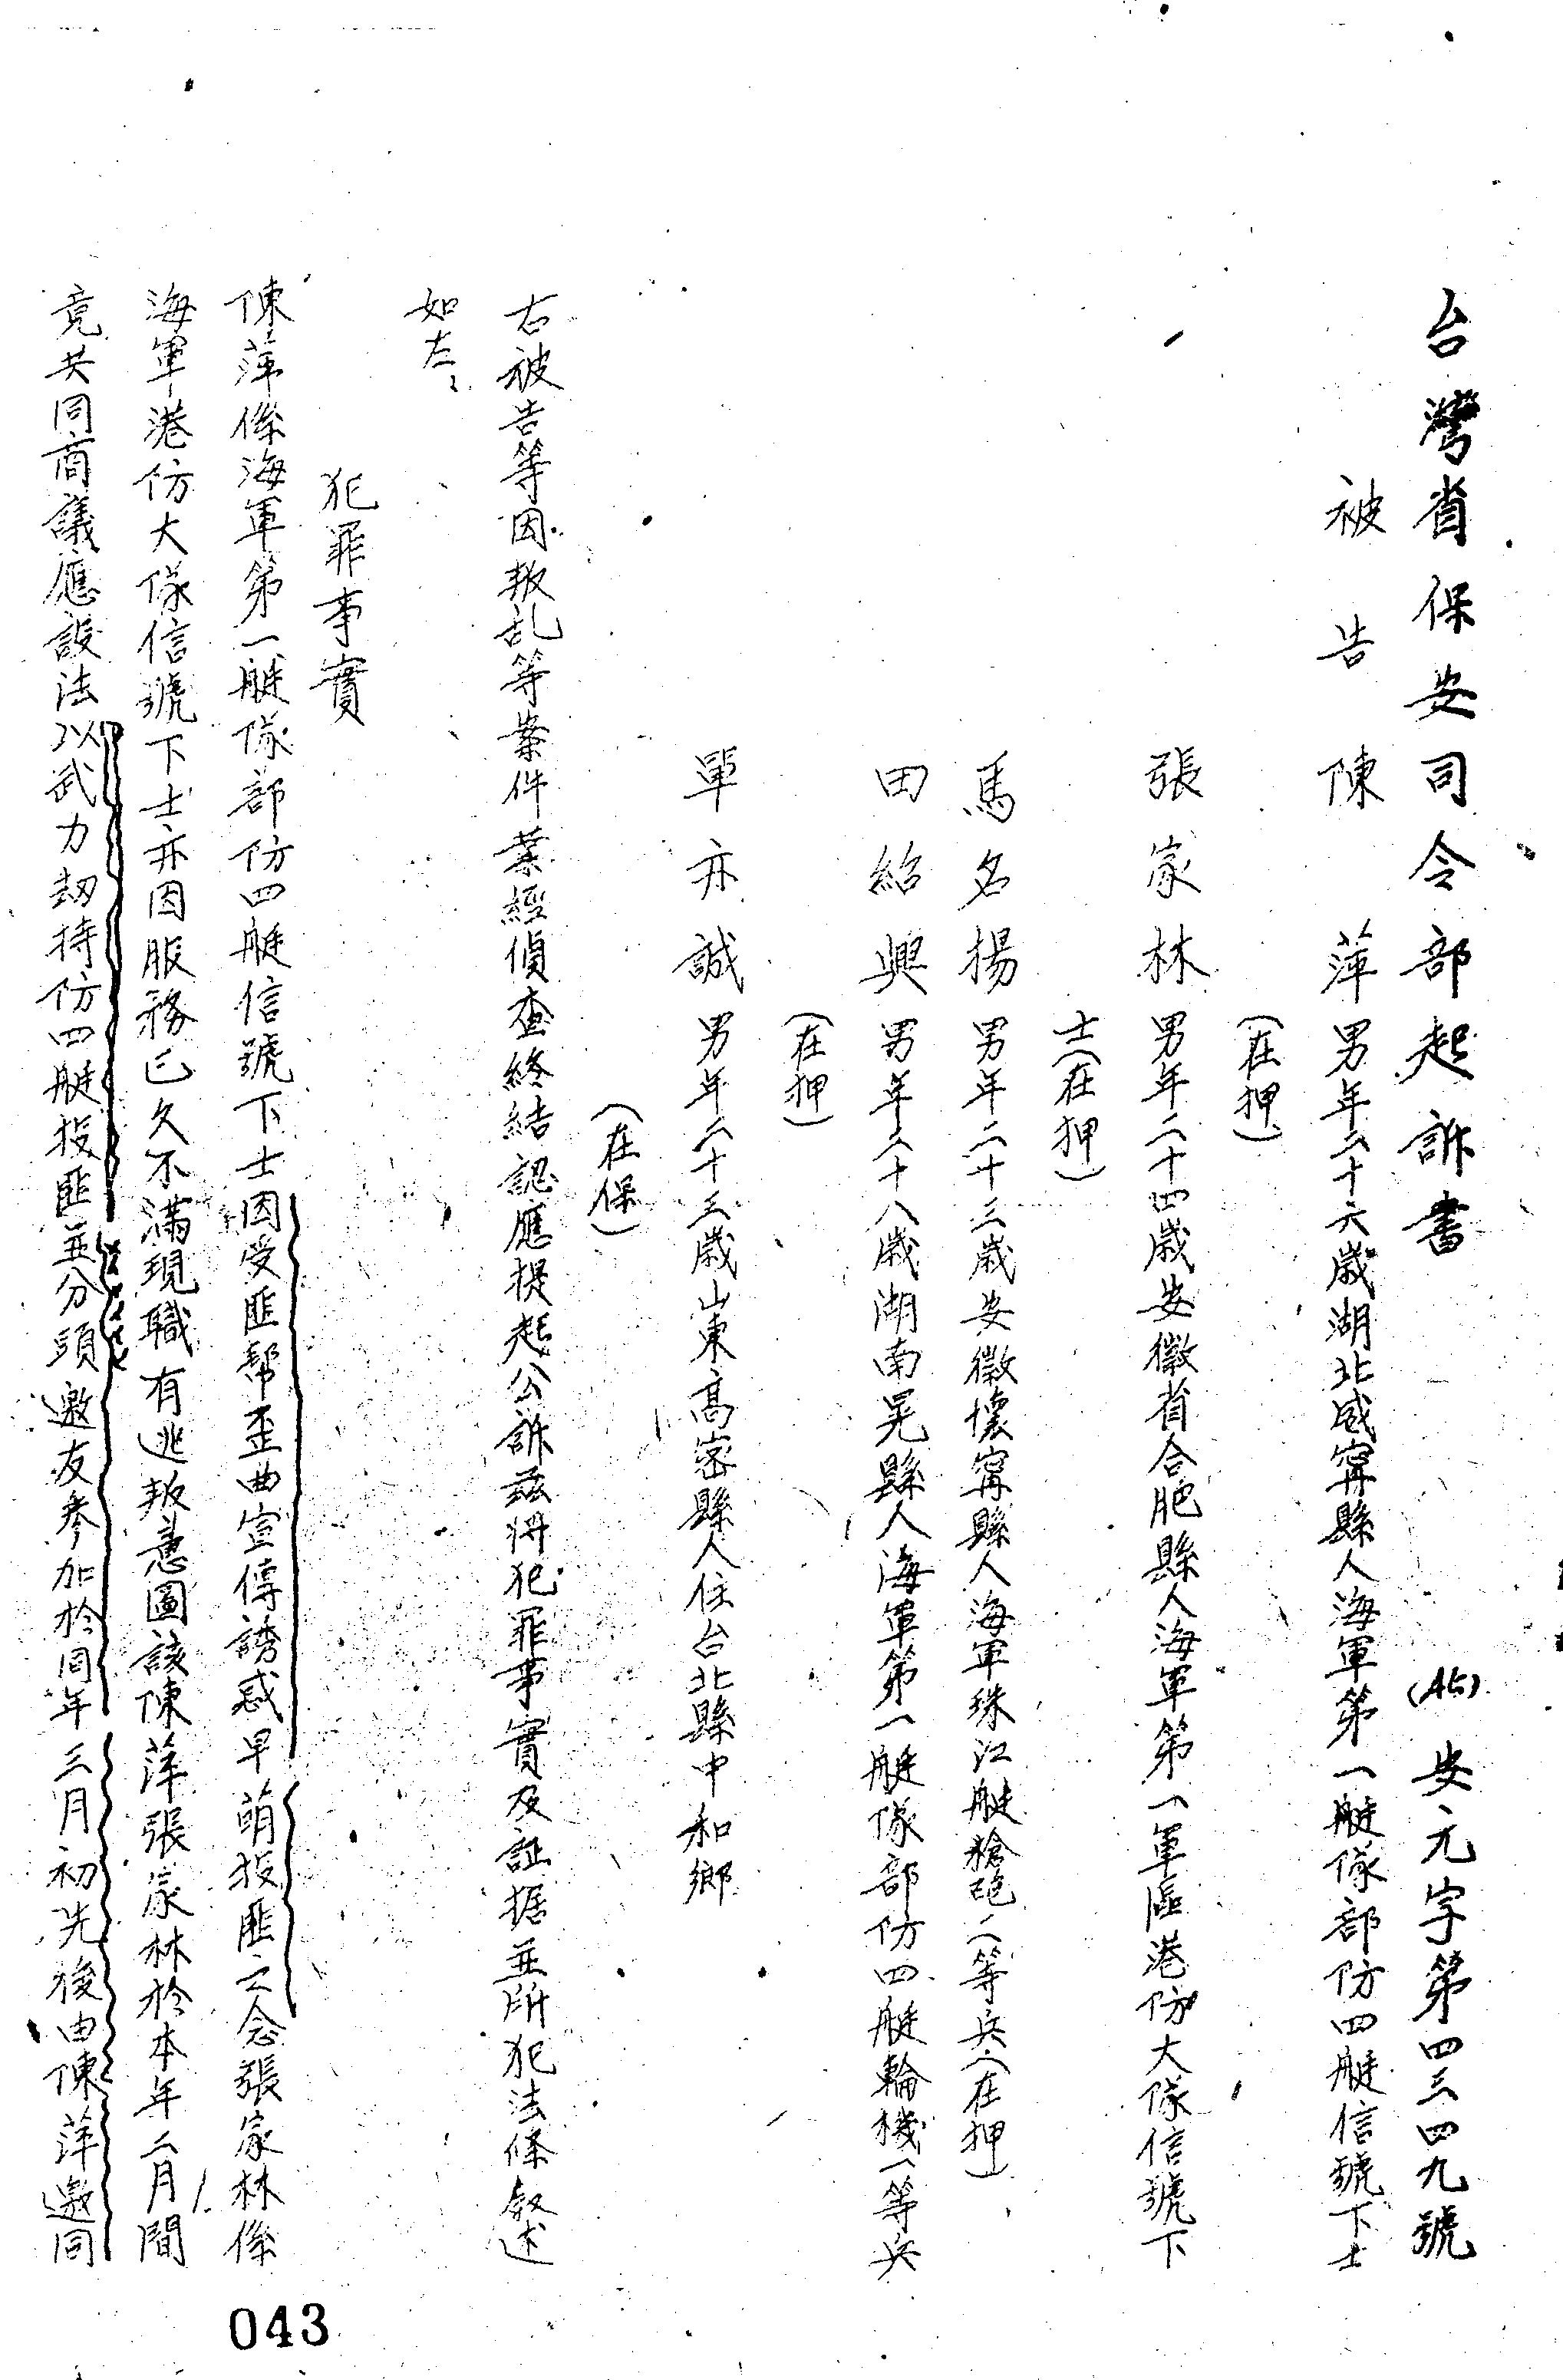 台灣省保安司令部起訴書 (45) 安元字第四三四九號
被告 陳萍 男年二十六歲湖北咸寧縣人海軍第一艇隊部仿四艇信號下士
(在押)
張家林 男年二十四歲安徽省合肥縣人海軍第一軍區港仿大隊信號下
士(在押)
馬名揚 男年二十三歲安徽懷寧縣人海軍珠江艇槍砲二等兵(在押)
田紹興 男年二十八歲湖南晃縣人海軍第一艇隊部仿四艇輪機一等兵
(在押)
單亦誠 男年二十三歲山東高密縣人住台北縣中和鄉
(在保)
右被告等因叛乱等案件業經偵查終結認應提起公訴茲將犯罪事實及証据並所犯法條敍述
如左：
犯罪事實
陳萍係海軍第一艇隊部仿四艇信號下士因受匪幫歪曲宣傳誘惑早萌投匪之念張家林係
海軍港仿大隊信號下士亦因服務已久不滿現職有逃叛意圖該陳萍張家林於本年二月間
竟共同商議應設法以武力劫持仿四艇投匪並分頭邀友參加於同年三月初先後由陳萍邀同
043